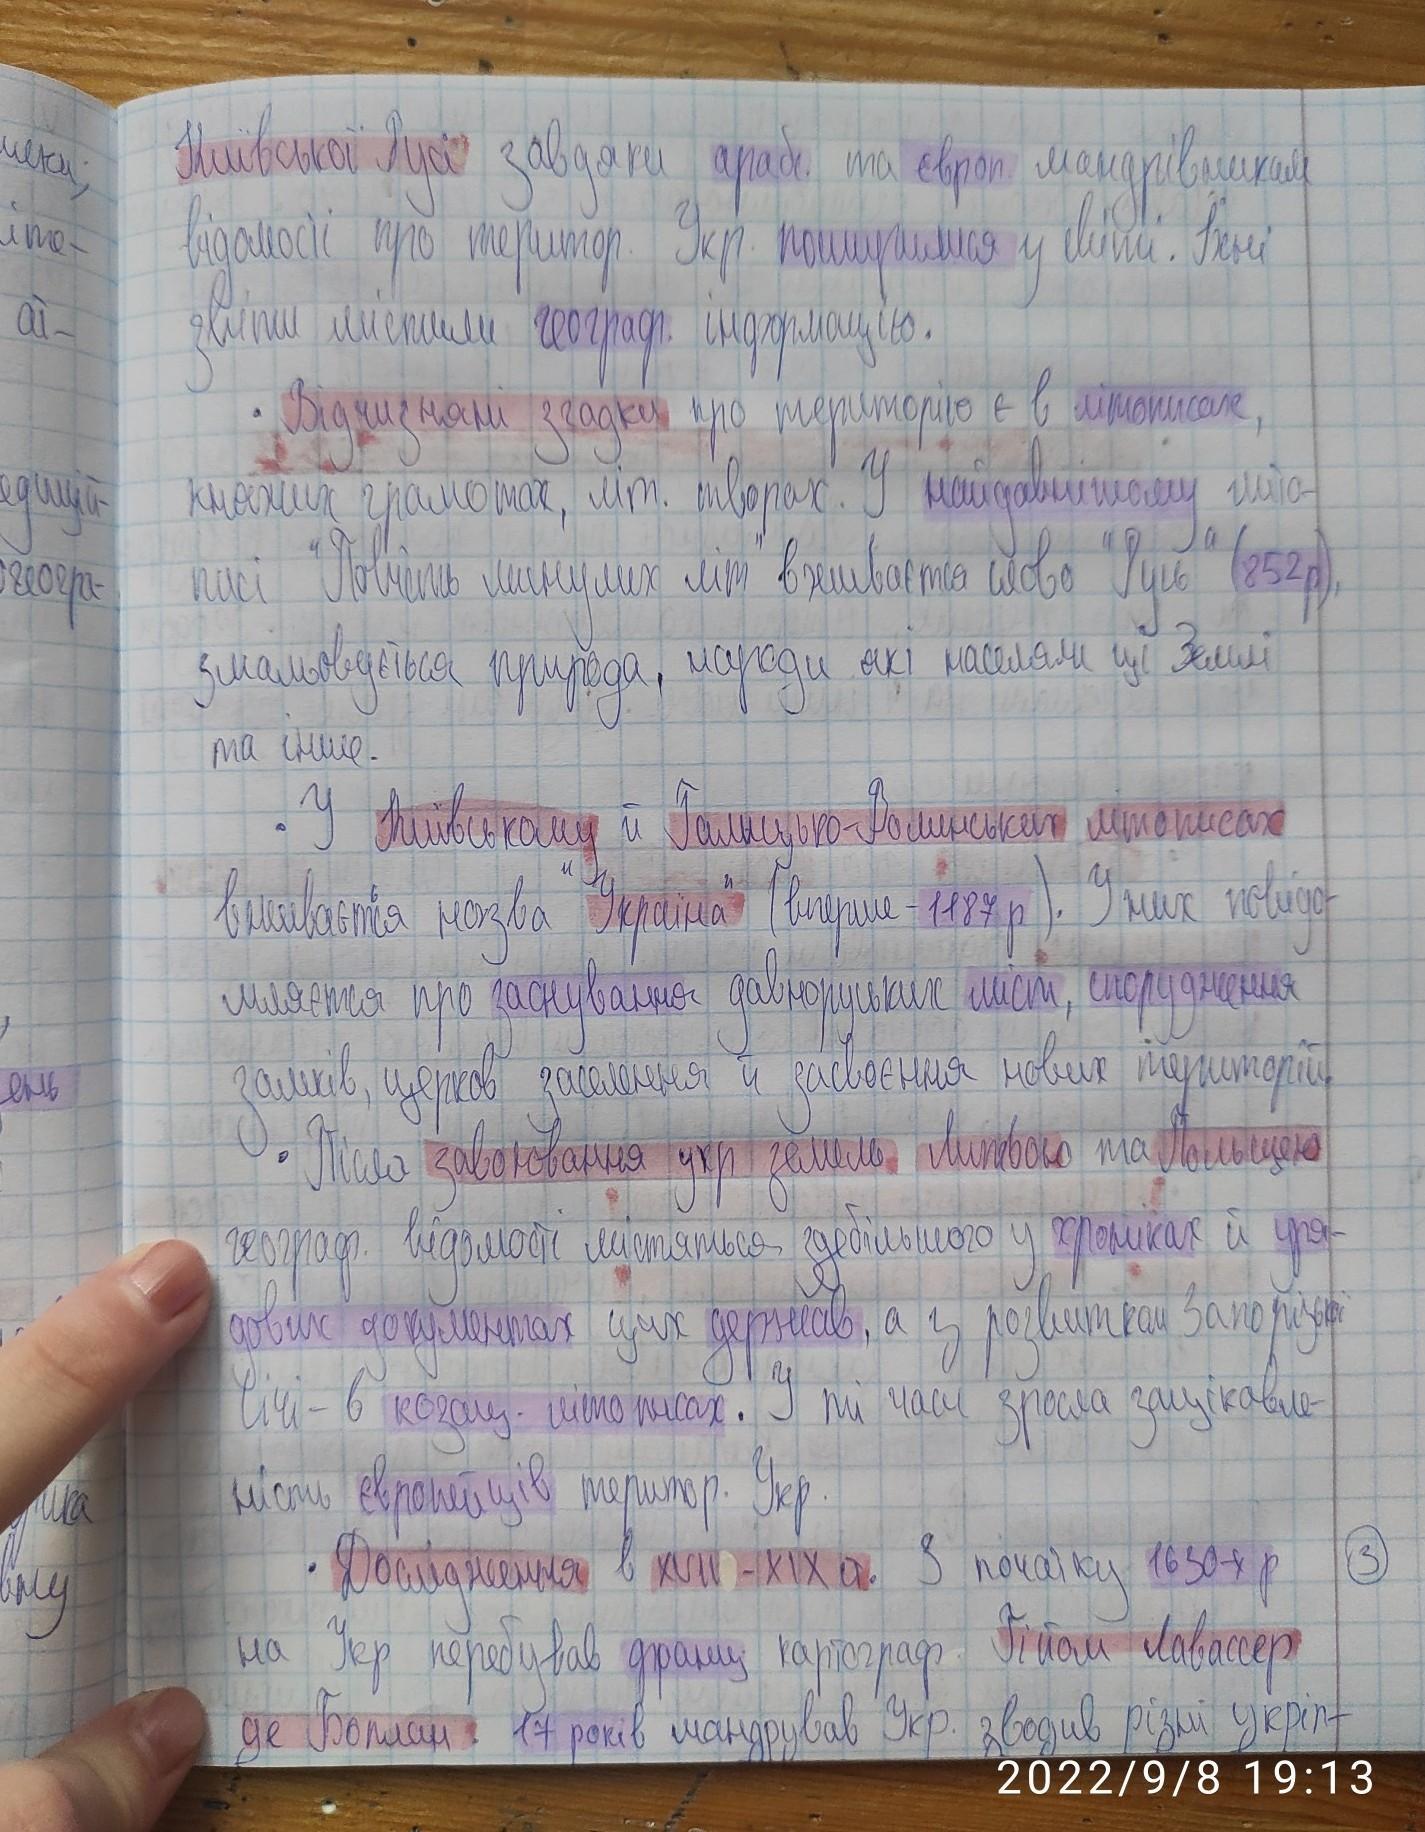 Київської Русі завдяки араб. та європ. мандрівникам
відомості про територ. Укр. поширилися у світі. Їхні
звіти містили географ. інформацію.
• Відчизняні згадки про територію є в літописах,
княжих грамотах, літ. творах. У найдавнішому літо-
писі "Повість минулих літ" вживається слово "Русь" (852р),
змальовується природа, народи які населяли ці Землі
та інше.
• У Київському й Галицько-Волинських літописах
вживається назва "Україна" (вперше - 1187 р). У них повідо-
мляється про заснування давноруських міст, спорудження
замків, церков заселення й засвоєння нових територій.
• Після завоювання укр земель Литвою та Польщею
географ. відомості містяться здебільшого у хроніках й уря-
дових документах цих держав, а із розвитком Запорізької
Січі - в козац. літописах. У ті часи зросла зацікавле-
ність європейців територ. Укр.
• Дослідження в XVII - XIX ст. З початку 1630-х р
на Укр перебував франц картограф. Гійом Лавассер
де Боплан. 17 років мандрував Укр. зводив різні укріп-
3
мки,
літо-
ень
вму
2022/9/8 19:13